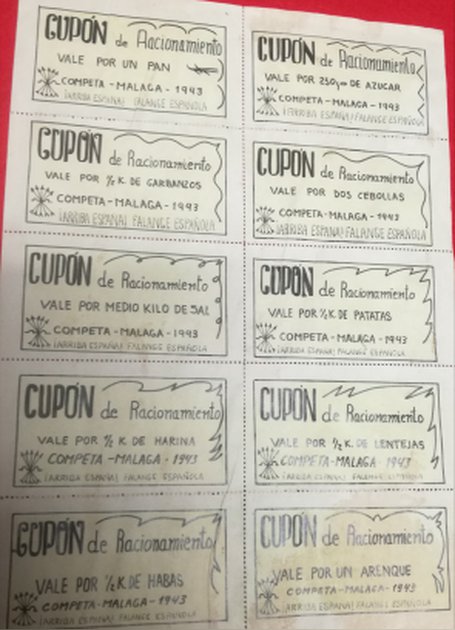 CUPÓN de Racionamiento
VALE POR UN PAN
COMPETA - MALAGA - 1943
¡ARRIBA ESPAÑA! FALANGE ESPAÑOLA
CUPÓN de Racionamiento
VALE POR 250 grs DE AZUCAR
COMPETA - MALAGA - 1943
¡ARRIBA ESPAÑA! FALANGE ESPAÑOLA
CUPÓN de Racionamiento
VALE POR ½ K. DE GARBANZOS
COMPETA - MALAGA - 1943
¡ARRIBA ESPAÑA! FALANGE ESPAÑOLA
CUPÓN de Racionamiento
VALE POR DOS CEBOLLAS
COMPETA - MALAGA - 1943
¡ARRIBA ESPAÑA! FALANGE ESPAÑOLA
CUPÓN de Racionamiento
VALE POR MEDIO KILO DE SAL
COMPETA - MALAGA - 1943
¡ARRIBA ESPAÑA! FALANGE ESPAÑOLA
CUPÓN de Racionamiento
VALE POR ½ K. DE PATATAS
COMPETA - MALAGA - 1943
¡ARRIBA ESPAÑA! FALANGE ESPAÑOLA
CUPÓN de Racionamiento
VALE POR ½ K. DE HARINA
COMPETA - MALAGA - 1943
¡ARRIBA ESPAÑA! FALANGE ESPAÑOLA
CUPÓN de Racionamiento
VALE POR ½ K. DE LENTEJAS
COMPETA - MALAGA - 1943
¡ARRIBA ESPAÑA! FALANGE ESPAÑOLA
CUPÓN de Racionamiento
VALE POR ½ K. DE HABAS
COMPETA - MALAGA - 1943
¡ARRIBA ESPAÑA! FALANGE ESPAÑOLA
CUPÓN de Racionamiento
VALE POR UN ARENQUE
COMPETA - MALAGA - 1943
¡ARRIBA ESPAÑA! FALANGE ESPAÑOLA